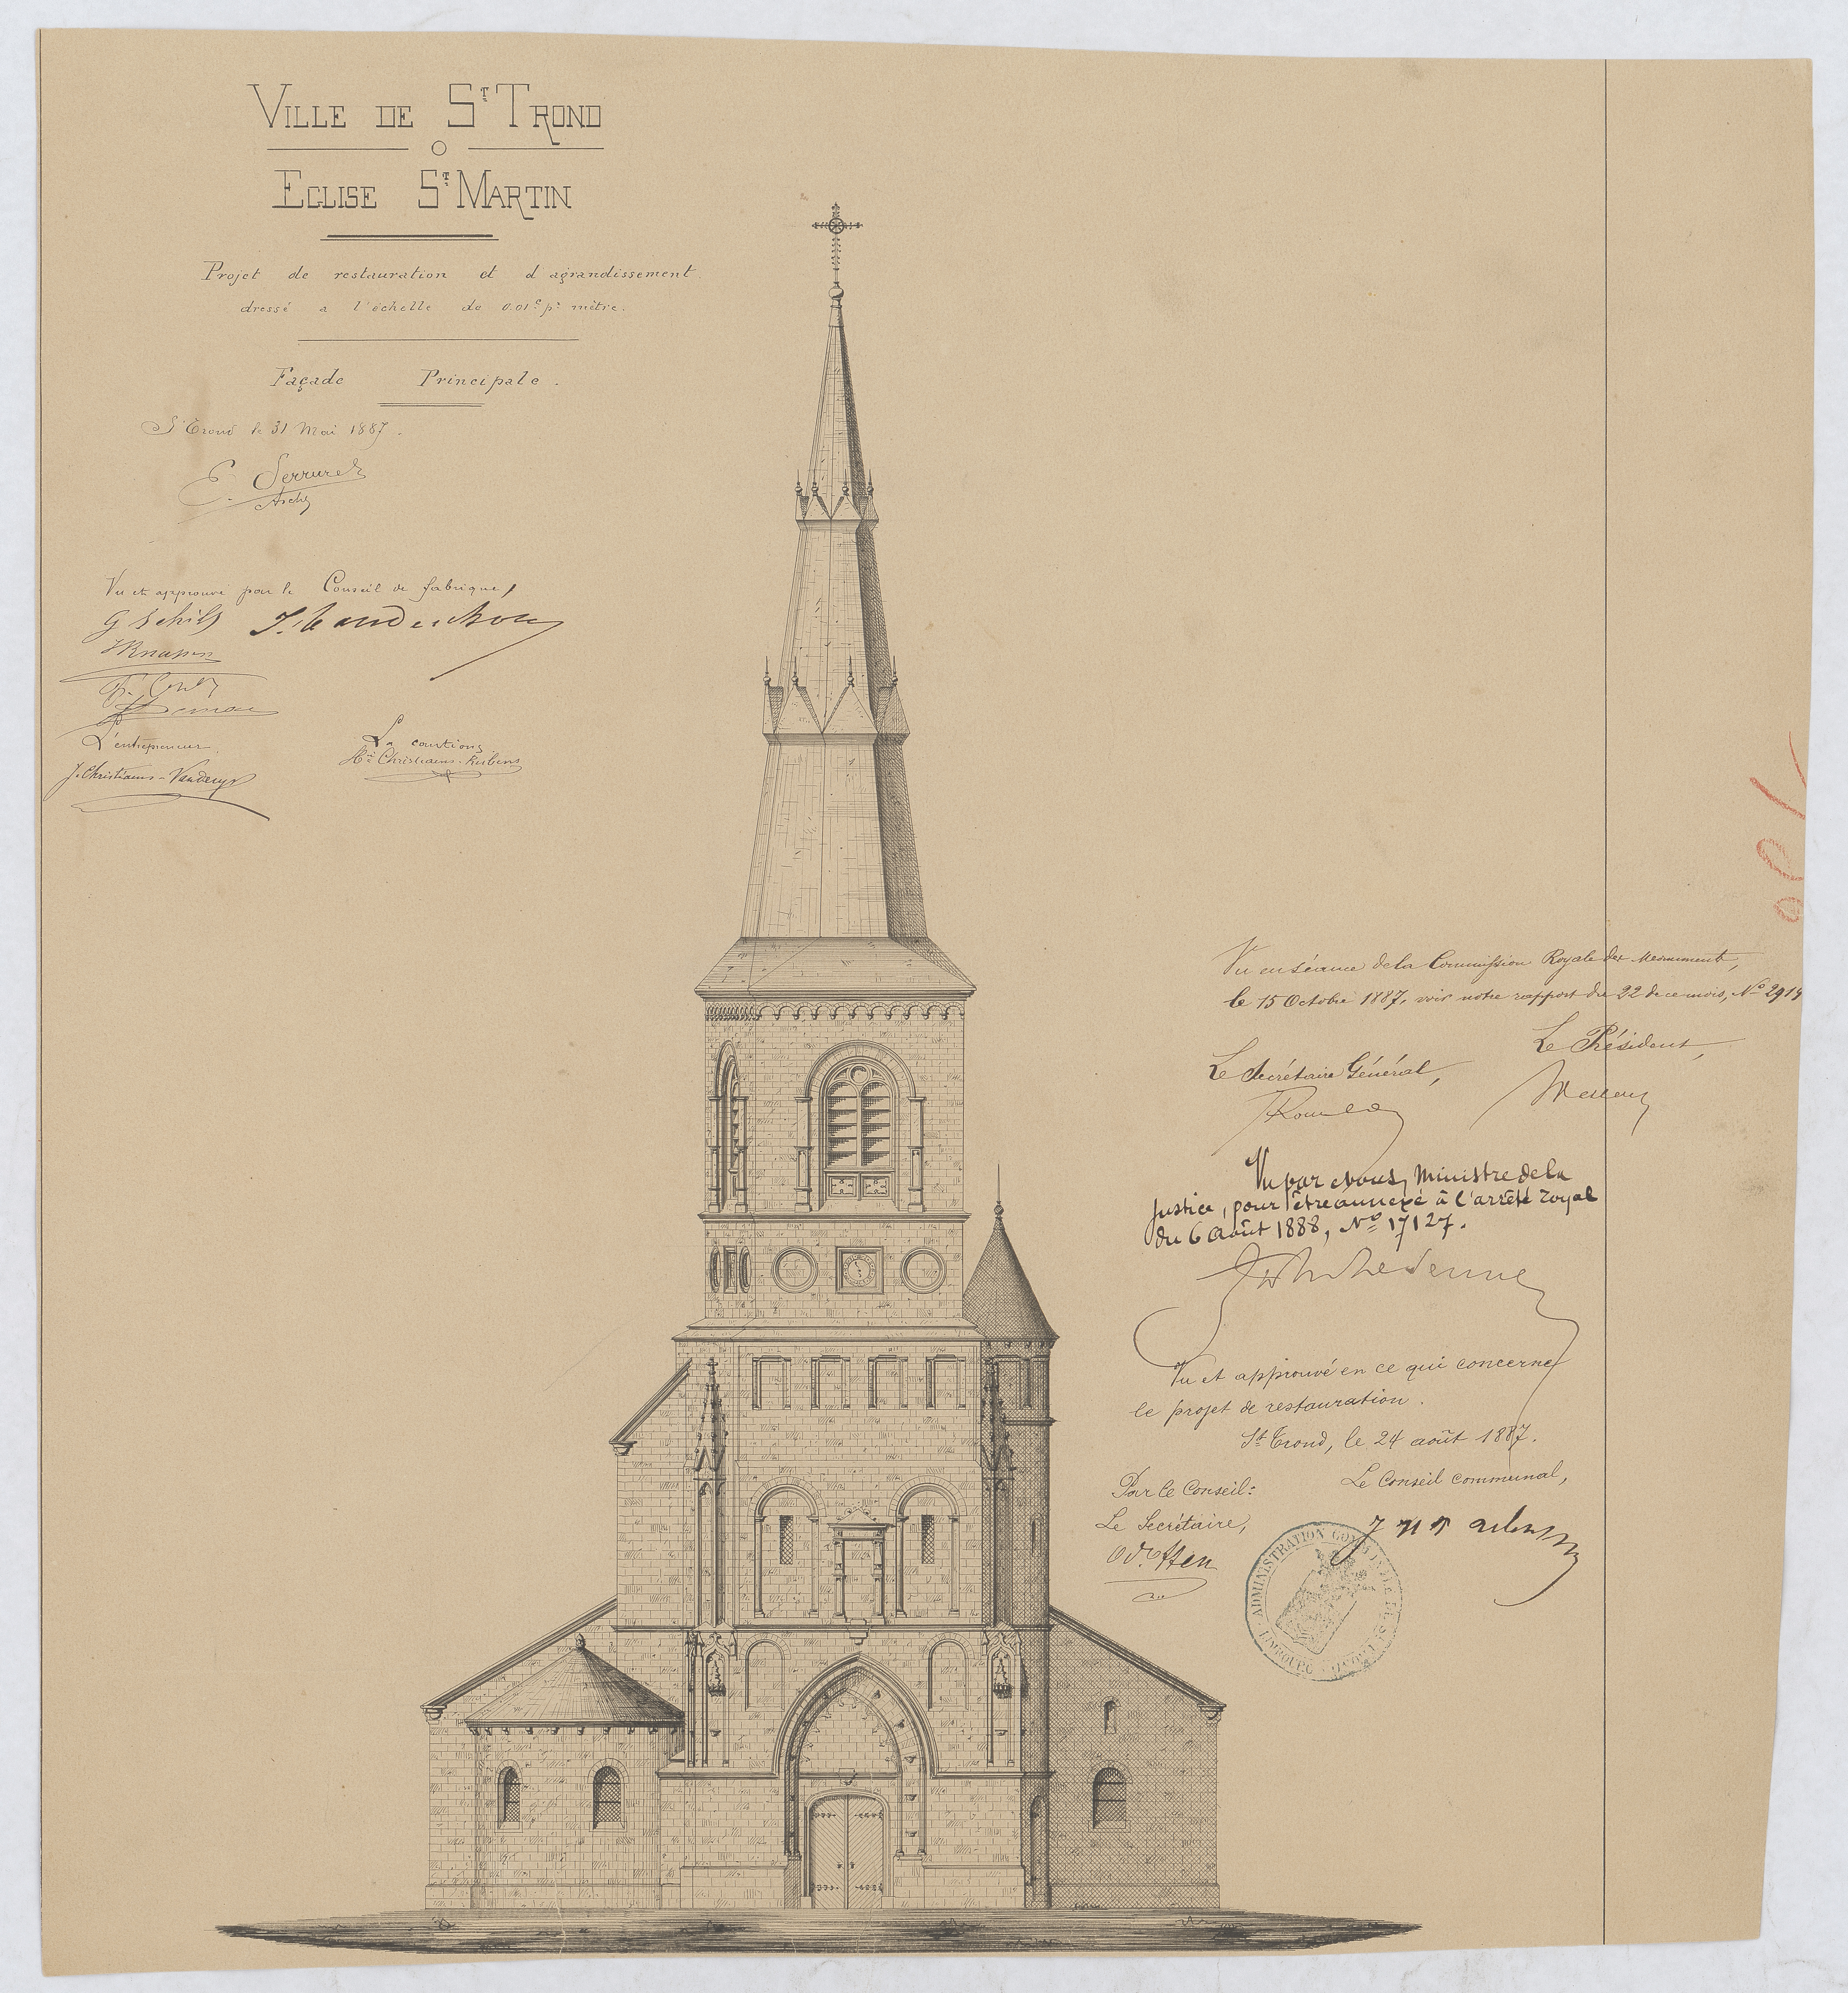 VILLE DE ST TROND
EGLISE ST MARTIN
Projet de restauration et d'agrandissement
dressé a l'échelle de 0.01c pr mètre.
Façade Principale.
St Trond le 31 Mai 1887.
E. Serrure
Arch
Vu et approuvé par le Conseil de fabrique,
G Schils
L'entrepreneur
La caution
J. Christiaens-
Christiaens-Rubens
Vu en séance de la Commission Royale des Monuments,
le 15 Octobre 1887, voir notre rapport du 22 de ce mois, No 2919
Le Président,
Le Secrétaire Général,
Vu par nous, Ministre de la
Justice, pour être annexé à l'arrêté royal
du 6 août 1888, No 17127.
Vu et approuvé en ce qui concerne
le projet de restauration.
St Trond, le 24 août 1887.
Le Conseil communal,
Par le Conseil:
Le Secrétaire,
ADMINISTRATION
LIMBOURG